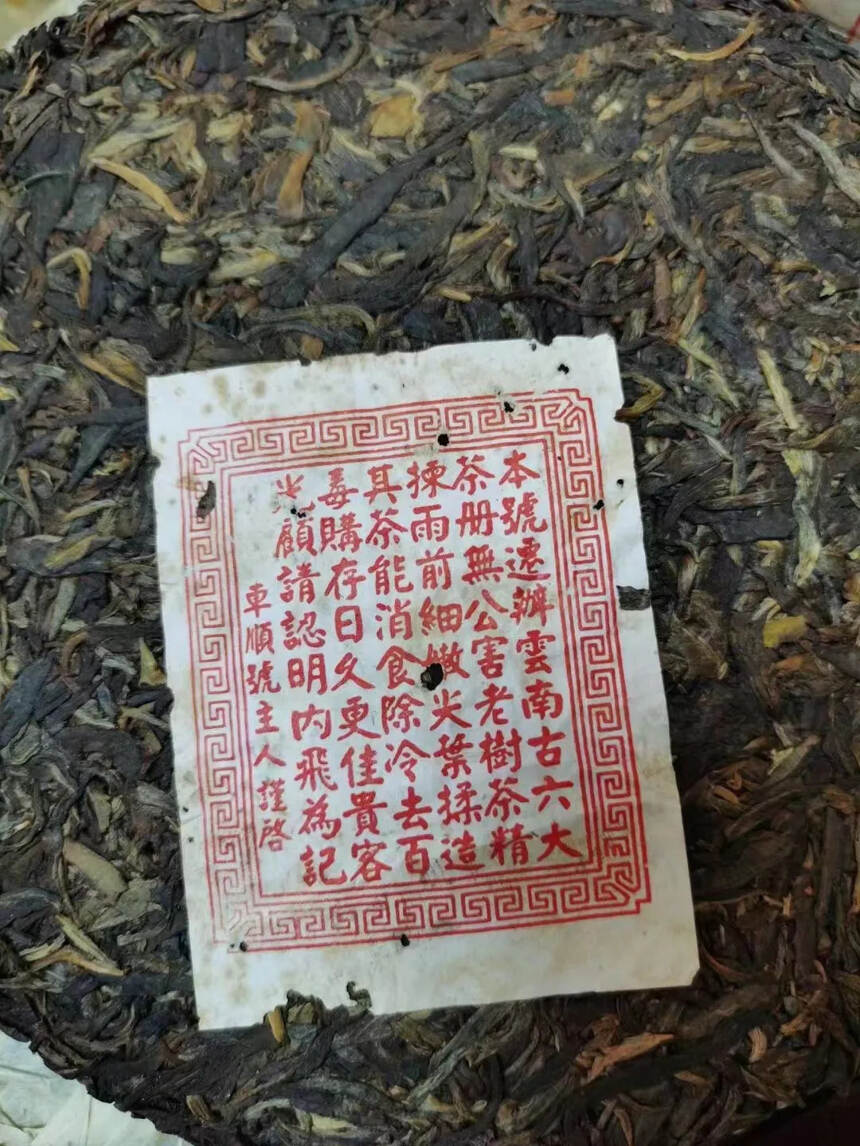 本號遷辦雲南古六大
茶册無公害老樹茶精
揀雨前細嫩尖葉揉造
其茶能消食除冷去百
毒購存日久更佳貴客
光顧請認明内飛為記
車順號主人謹啓